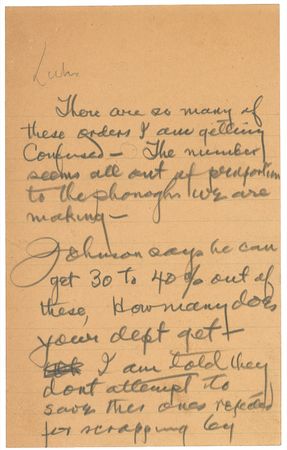 There are so many of
these orders I am getting
Confused — The number
seems all out of proportion
to the phonoghs we are
making —
Johnson says he can
get 30 to 40% out of
these, How many does
your dept get —
I am told they
dont attempt to
save the ones rejected
for scrapping by